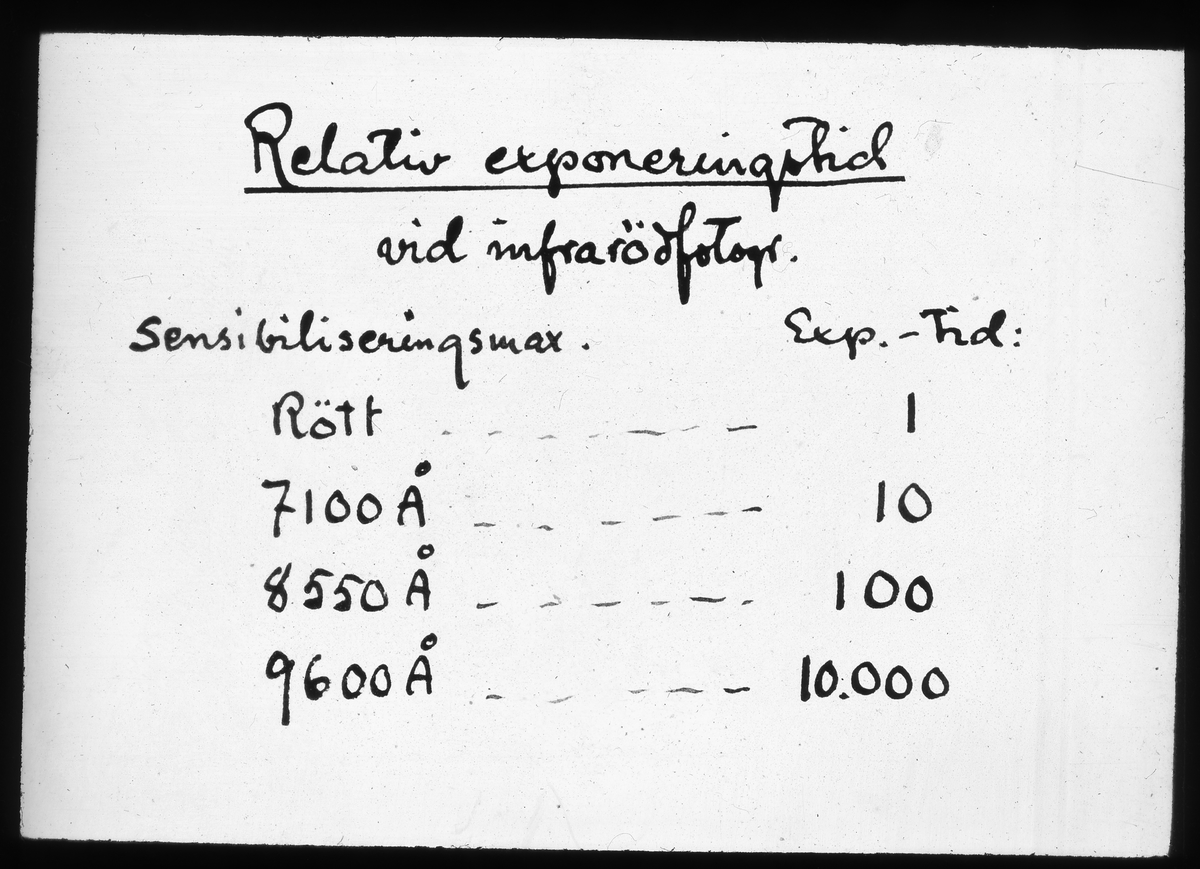 Relativ exponeringstid
vid infrarödfotogr.
Sensibiliseringsmax. Exp.-Tid:
Rött - - - - - - 1
7100 Å - - - - - 10
8550 Å - - - - - - 100
9600 Å - - - - - 10.000